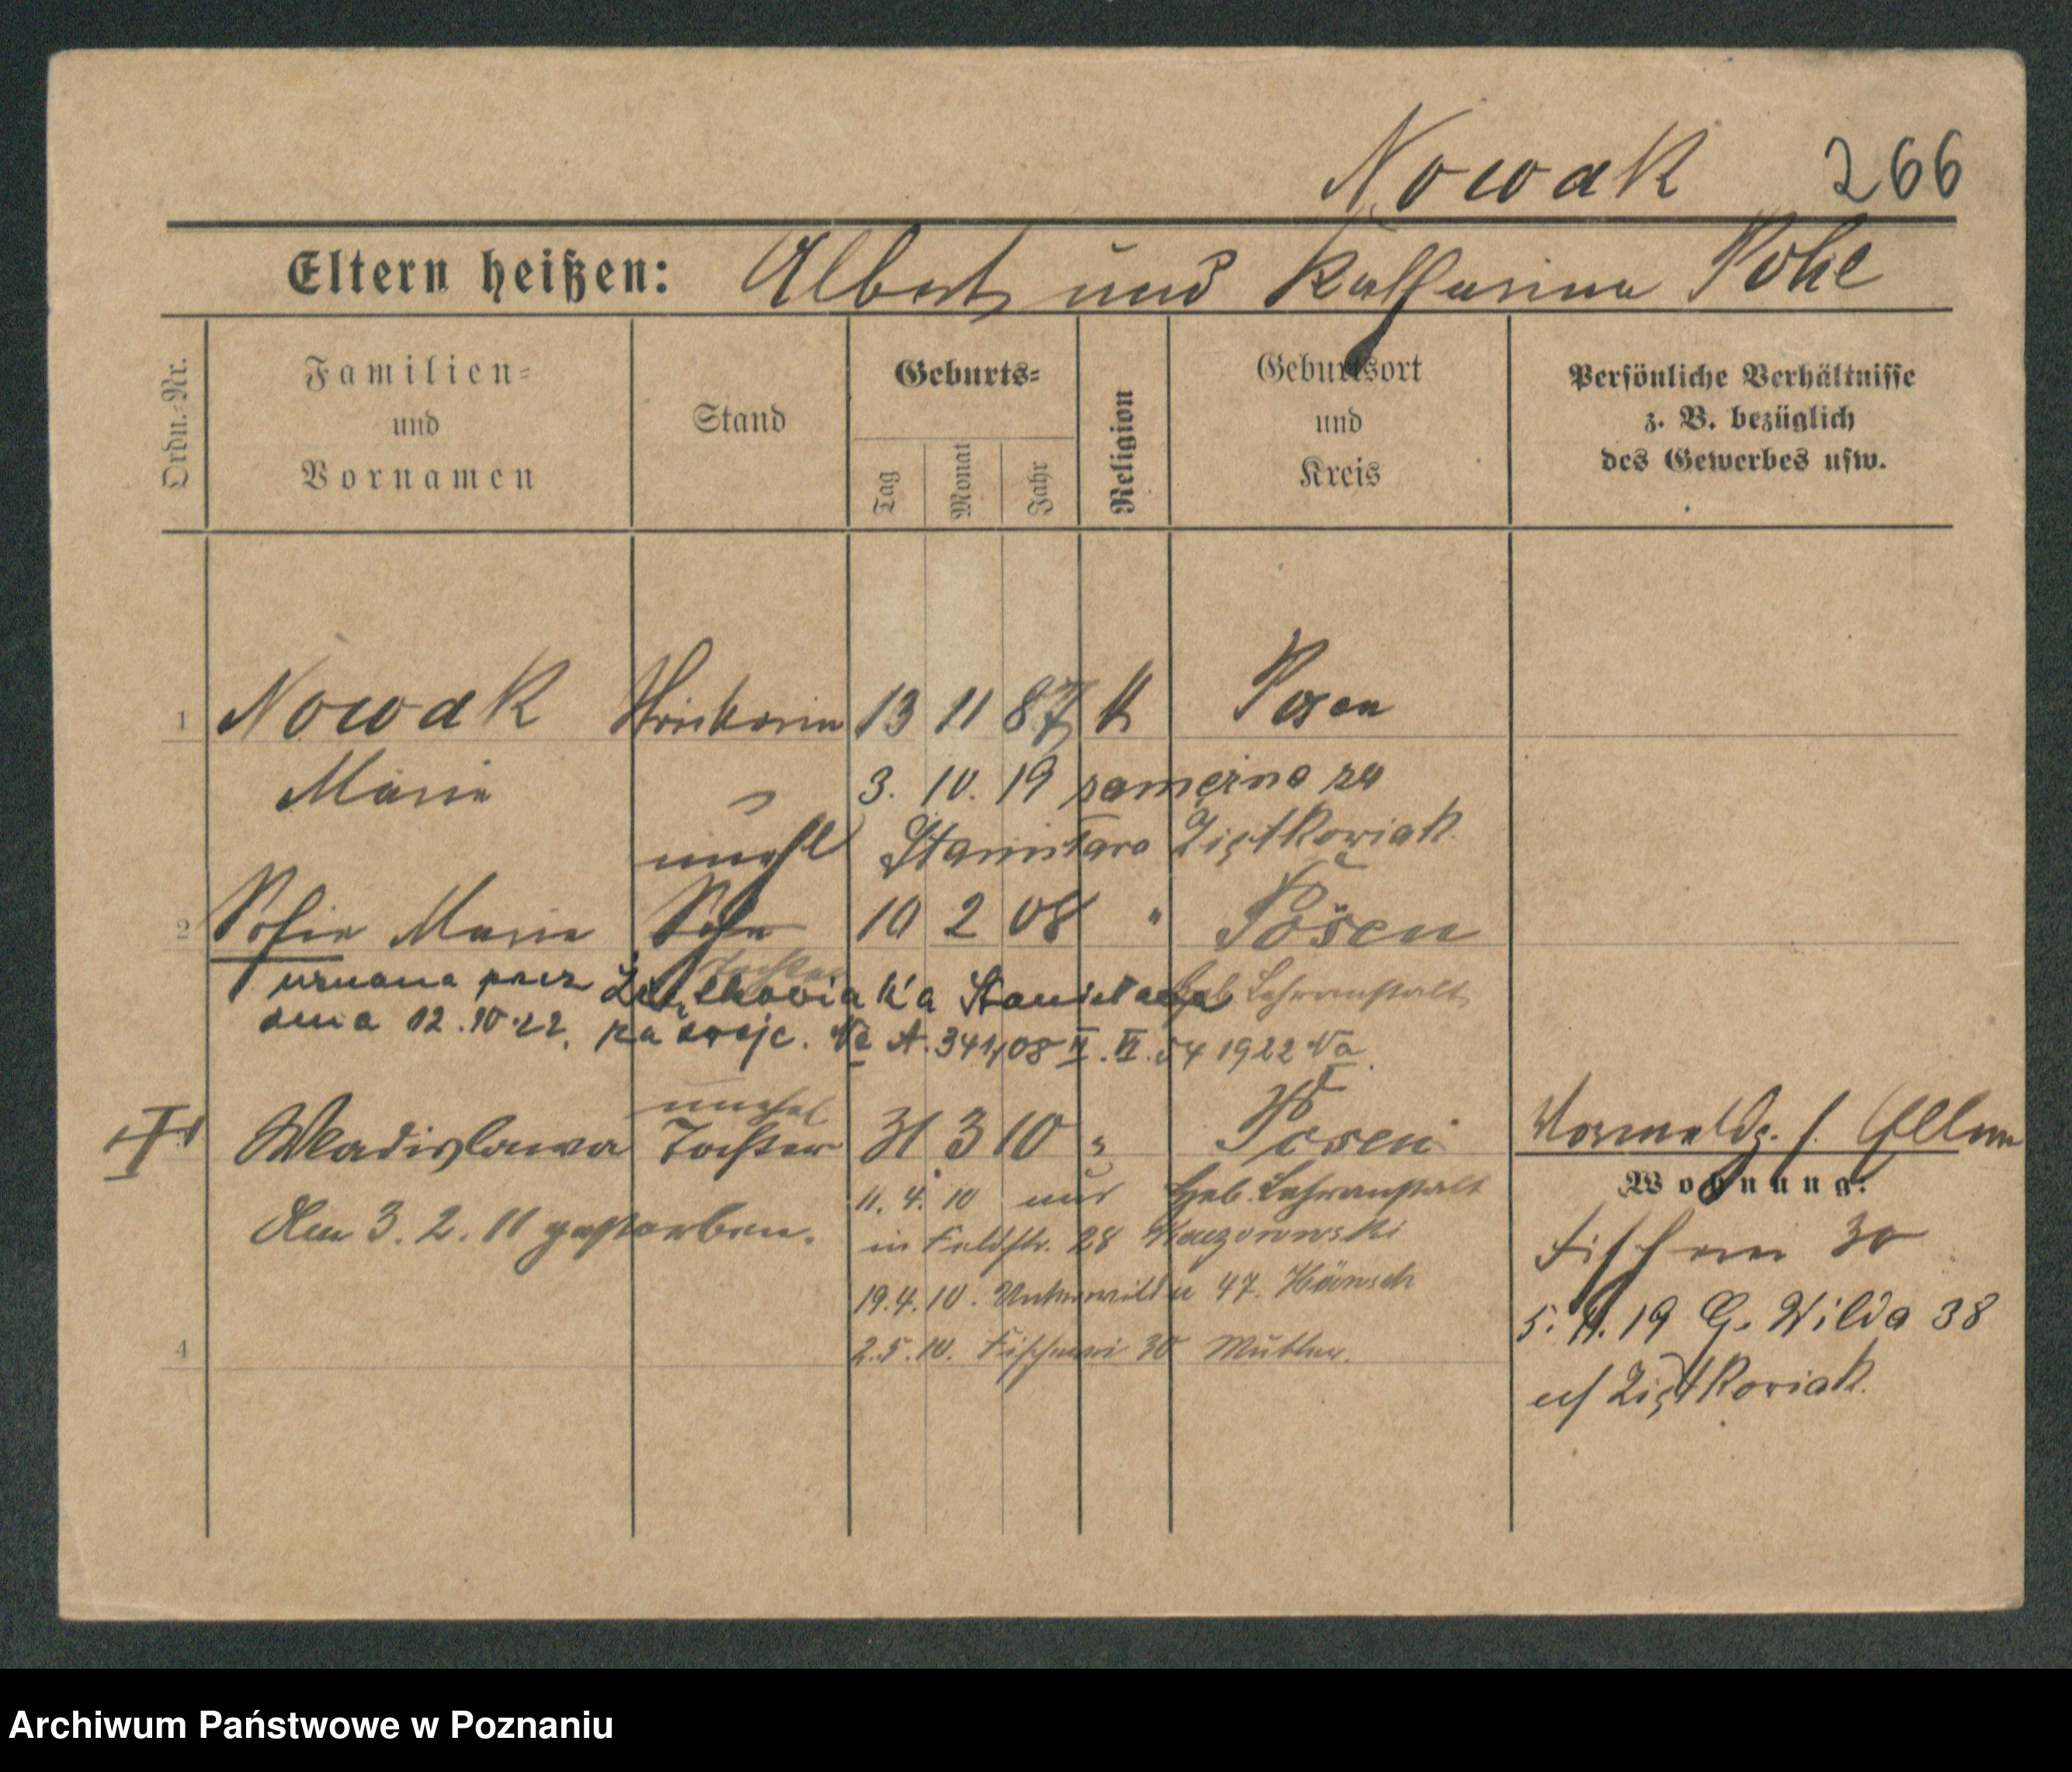 Nowak 266
Eltern heißen: Albert und Katharina Pohl
Ordn.-Nr.
Familien-
und
Vornamen
Stand
Geburts-
Tag
Monat
Jahr
Religion
Geburtsort
und
Kreis
Persönliche Verhältnisse
z. B. bezüglich
des Gewerbes usw.
1 Nowak 13 11 87 K Posen
Maria 3. 10. 19 zamężna za
unehl Stanisława Ziętkowiak.
2 Sofia Maria Sohn 10 2 08 " Posen
Tochter Heb. Lehranstalt
uznana przez Ziętkowiaka Stanisława
dnia 12.10.22. na zasje. Va A. 341/08 II. VI. 54 1922 Va
unehel
Wladislawa Tochter 31 3 10 " Posen
Den 3. 2. 11 gestorben.
11. 4. 10 Heb. Lehranstalt
in Feldstr. 28 Kaczorowski
19. 4. 10. Unterwilda 47. Hänsch
4 2. 5. 10. Fischerei 30 Mutter.
Wohnung:
Fischerei 30
5. 11. 19 G. Wilda 38
Ziętkowiak.
Archiwum Państwowe w Poznaniu